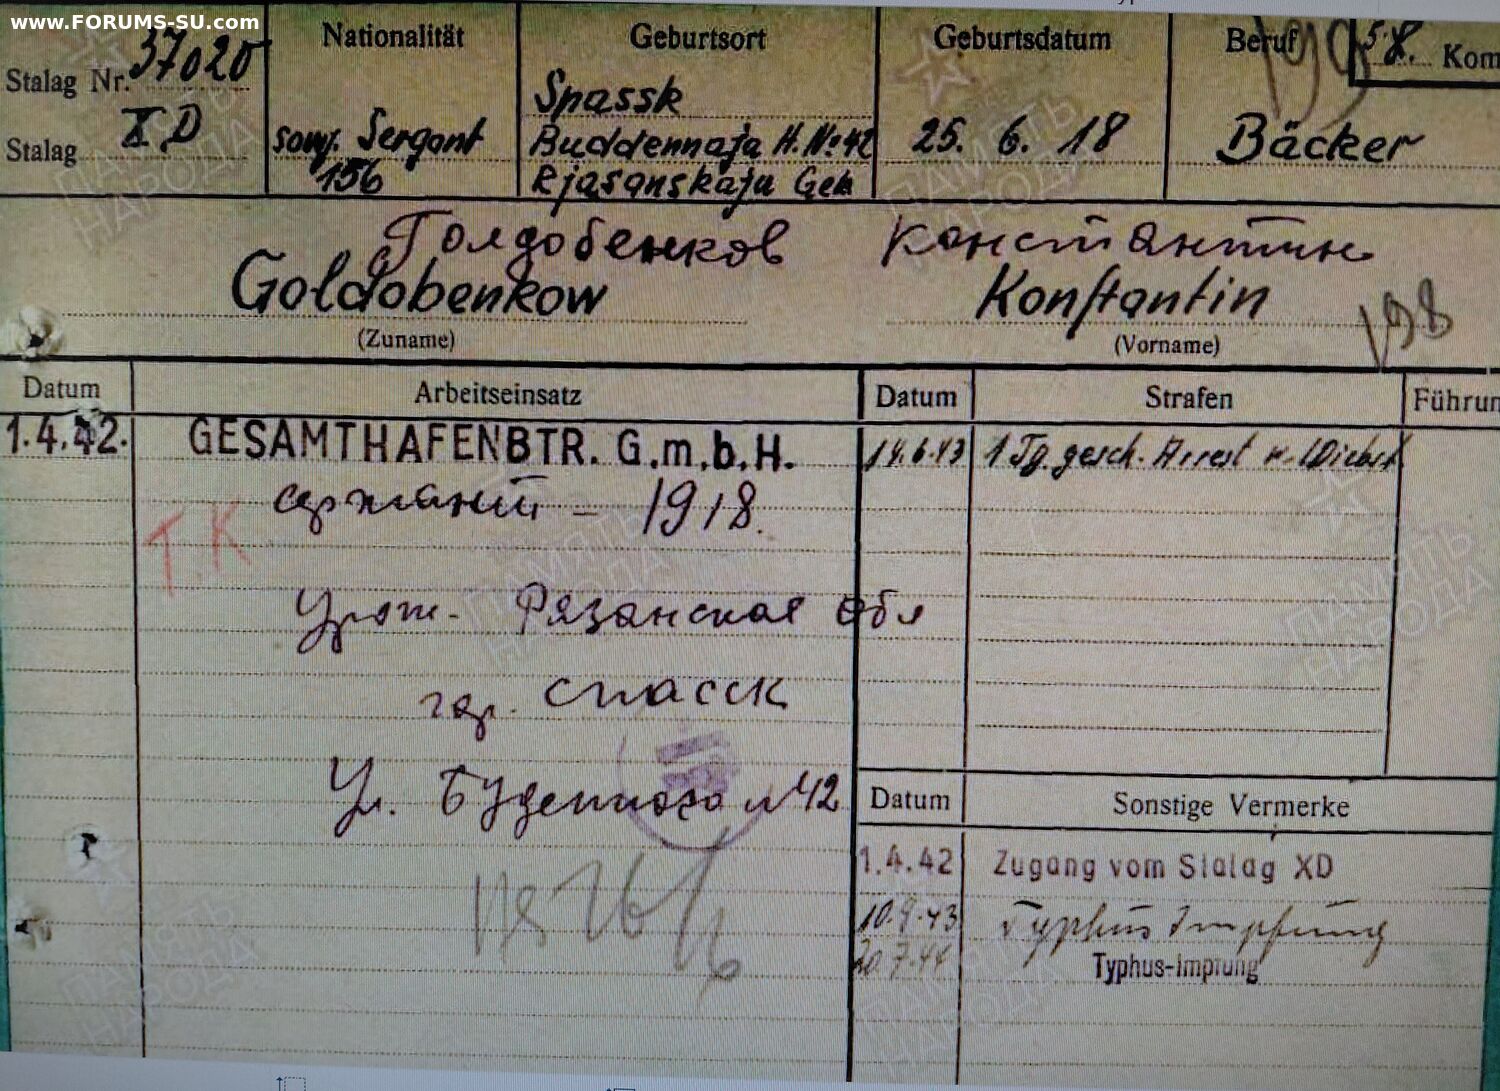 www.FORUMS-SU.com
Nationalität Geburtsort Geburtsdatum Beruf 58. Kom
Stalag Nr. 37020
Spassk
Stalag XD sowj. Sergant Buddennaja H.№42 25. 6. 18 Bäcker
156 Rjasanskaja Geb
Голдобенков Константин
Goldobenkow Konstantin
(Zuname) (Vorname)
198
Datum Arbeitseinsatz Datum Strafen Führun
1.4.42. GESAMTHAFENBTR. G.m.b.H. 14.6.43 1 Tg. gesch. Arrest w.
сержант - 1918.
Т.К
Урож. Рязанская обл
гор. Спасск
Ул. Буденного №42
Datum Sonstige Vermerke
1.4.42 Zugang vom Stalag XD
10.9.43 Typhus Impfung
20.7.44 Typhus-Impfung
ПАМЯТЬ НАРОДА